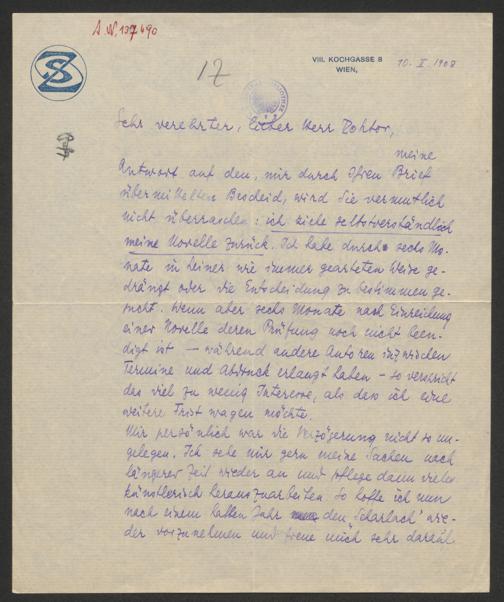 A.N. 137490
SZ
VIII. KOCHGASSE 8
WIEN,
10. X. 1908
17
Sehr verehrter, lieber Herr Doktor,
meine
Antwort auf den, mir durch Ihren Brief
übermittelten Bescheid, wird Sie vermutlich
nicht überraschen: ich ziehe selbstverständlich
meine Novelle zurück. Ich habe durch sechs Mo-
nate in keiner wie immer gearteten Weise ge-
drängt oder die Entscheidung zu bestimmen ge-
sucht. Wenn aber sechs Monate nach Einreichung
einer Novelle deren Prüfung noch nicht been-
digt ist – während andere Autoren inzwischen
Termine und Abdruck erlangt haben – so verspricht
das viel zu wenig Interesse, als dass ich eine
weitere Frist wagen möchte.
Mir persönlich war die Verzögerung nicht so un-
gelegen. Ich sehe mir gern meine Sachen nach
längerer Zeit wieder an und pflege dann vieles
künstlerisch herauszuarbeiten. So hoffe ich nun
nach einem halben Jahr den „Scharlach" wie-
der vorzunehmen und freue mich sehr darauf.